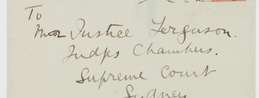 To
Mr Justice Ferguson.
Judges Chambers.
Supreme Court
Sydney